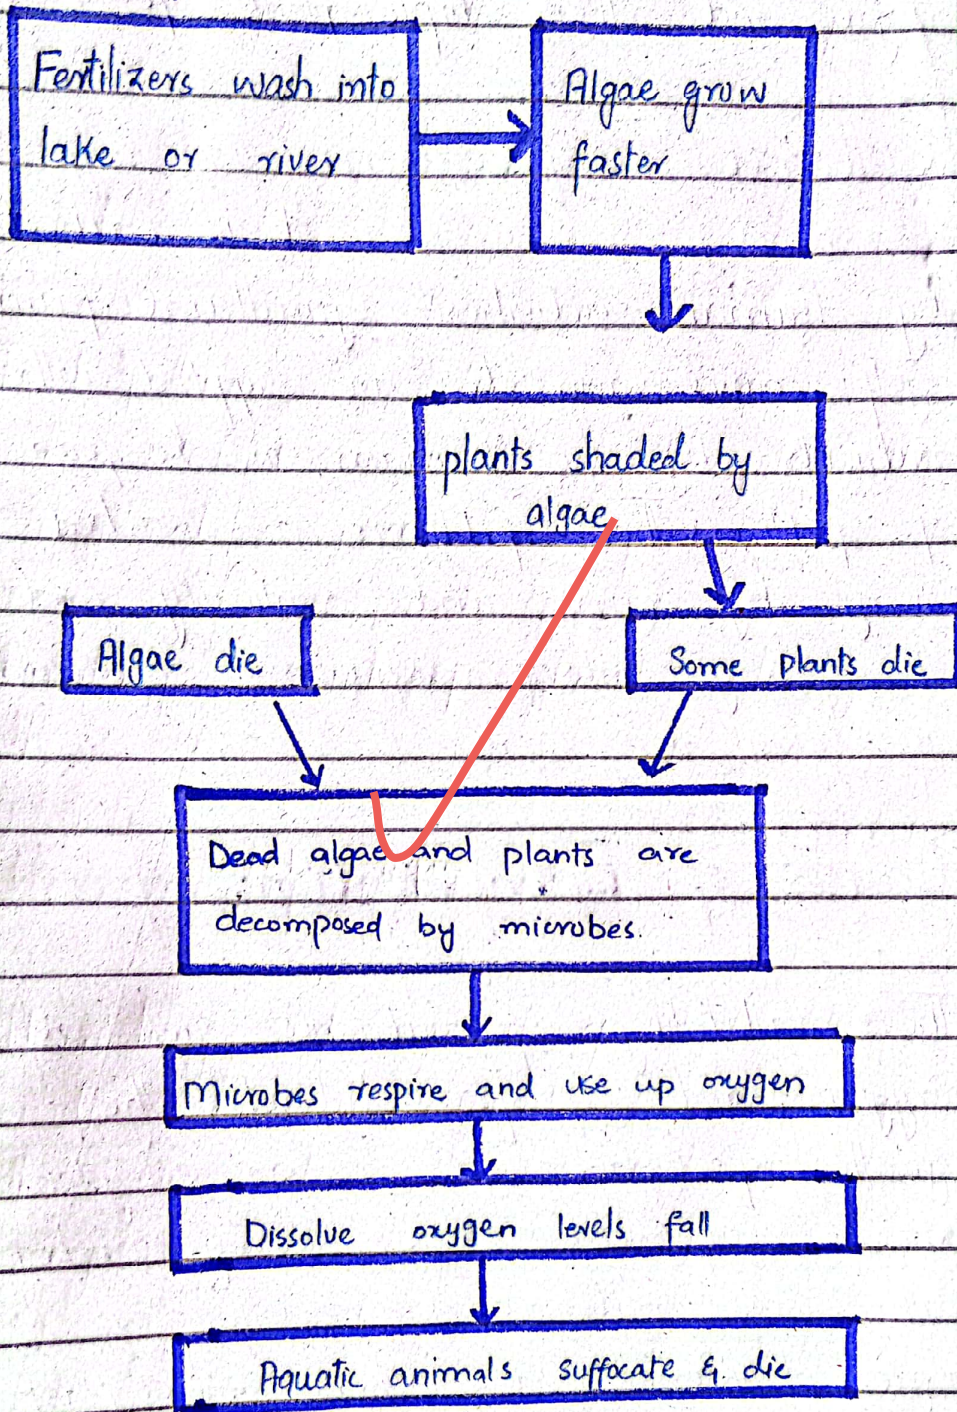 Fertilizers wash into
lake or river
Algae grow
faster
plants shaded by
algae
Algae die
Some plants die
Dead algae and plants are
decomposed by microbes.
Microbes respire and use up oxygen
Dissolve oxygen levels fall
Aquatic animals suffocate & die